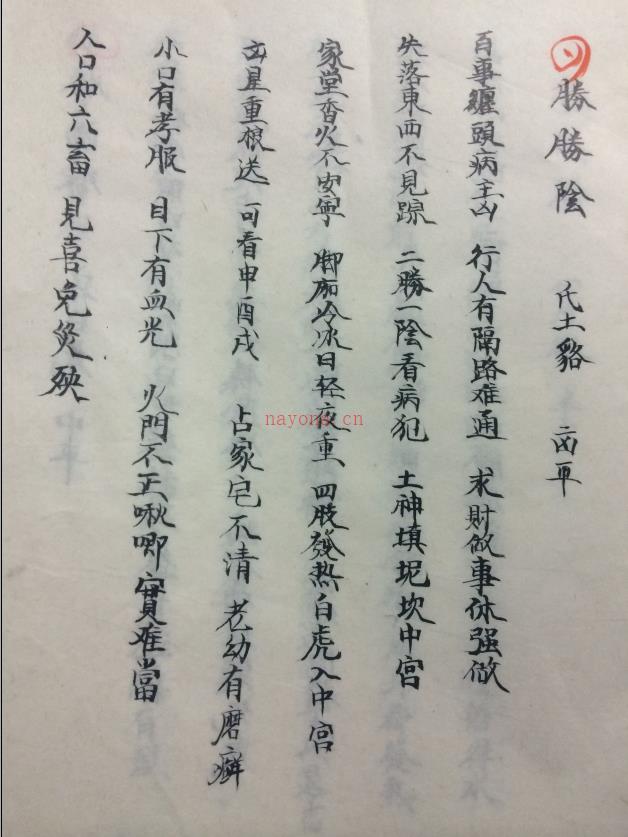 勝勝陰 氏土貉 凶平
百事纏頭病主凶 行人有隔路难通 求財做事休强做
失落東西不見踪 二勝一陰看病犯 土神填坭坎中宫
家堂香火不安寧 脚冷冰日轻夜重 四肢發热白虎入中宫
星重根送 可看申酉戌 占家宅不清 老幼有磨癣
小口有孝服 目下有血光 火門不正啾唧實难當
人口和六畜 見喜免災殃
nayona.cn